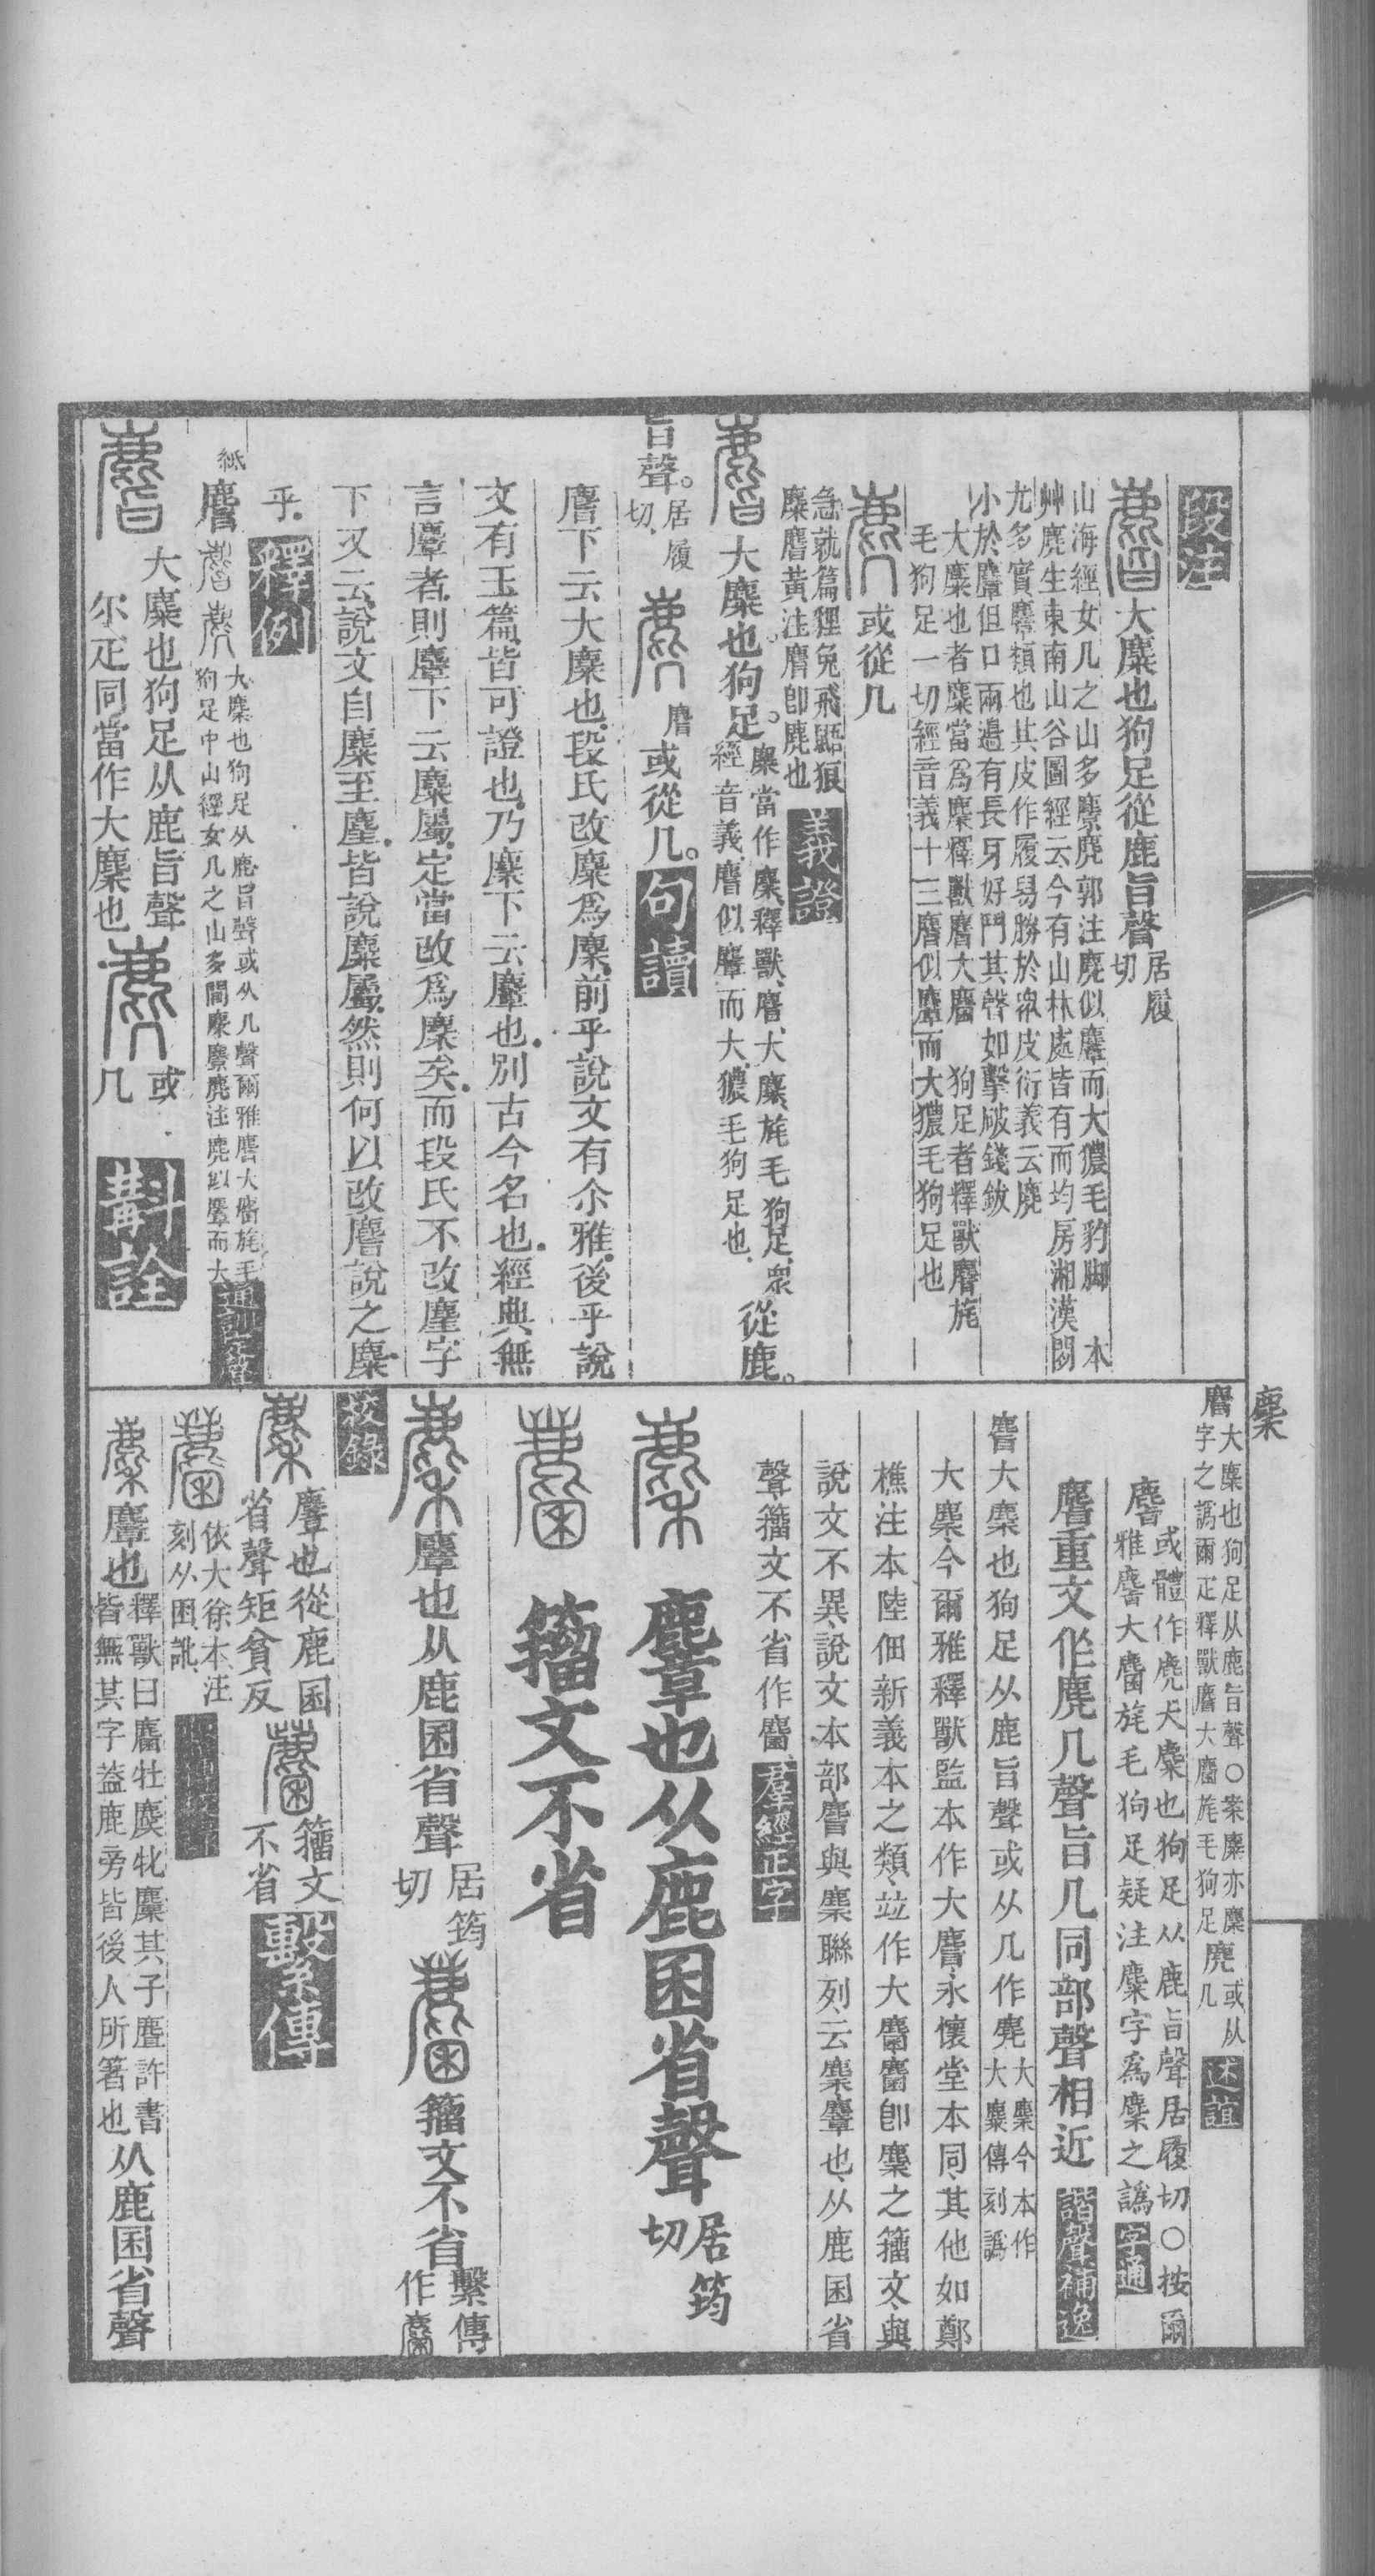 段注
大麋也狗足從鹿旨聲居履切
山海經女几之山多麖麂郭注麂似麞而大獶毛豹脚 本
艸麂生東南山谷圖經云今有山林處皆有而均房湘漢閒
尤多實麞類也其皮作履舄勝於衆皮衍義云麂
小於麞但口兩邊有長牙好鬥其聲如擊破錢鈸
大麋也者麋當爲麇釋獸麔大麕 狗足者釋獸麔旄
毛狗足一切經音義十三麔似麞而大獶毛狗足也
或從几
急就篇貍兔飛鼯狼
麋麔黃注麔卽麂也義證
大麋也。狗足。麋當作麇釋獸、麔、大麇、旄毛狗足、衆
經音義麔似麞而大、獶毛狗足也、從鹿。
旨聲。居履切、
麔或從几。句讀
麔下云大麋也、段氏改麋爲麇、前乎說文有尒雅、後乎說
文有玉篇、皆可證也、乃麋下云麞也、別古今名也、經典無
言麞者、則麞下云麋屬、定當改爲麇矣、而段氏不改麈字
下又云、說文自麋至麈、皆說麋屬、然則何以改麔說之麋
乎、釋例
紙
麔
大麋也狗足从鹿旨聲或从几聲爾雅麔大麕旄毛
狗足中山經女几之山多閭麋麖麂注麂似麞而大
通訓定聲
大麋也狗足从鹿旨聲
尔疋同當作大麇也
或几
斠詮
麇
麔大麋也狗足从鹿旨聲○案麋亦麇
字之譌爾疋釋獸麔大麕旄毛狗足麂或从几述誼
麔或體作麂大麋也狗足从鹿旨聲居履切○按爾
雅麔大麕旄毛狗足疑注麋字爲麇之譌字通
麔重文作麂几聲旨几同部聲相近諧聲補逸
麔大麋也狗足从鹿旨聲或从几作麂大麋今本作大麋傳刻譌
大麇、今爾雅釋獸監本作大麔、永懷堂本同、其他如鄭
樵注本陸佃新義本之類、竝作大麕、麕卽麇之籀文、與
說文不異、說文本部麔與麇聯列、云麇麞也、从鹿囷省
聲、籀文不省作麕、羣經正字
麞也从鹿囷省聲居筠切
籀文不省
麞也从鹿囷省聲居筠切
籀文不省繫傳作
校錄
麞也從鹿囷
省聲矩貧反
籀文不省
繫傳
依大徐本、注
刻从困、訛、
麞也釋獸曰麕牡麌牝麜其子麆許書
皆無其字葢鹿旁皆後人所箸也从鹿囷省聲